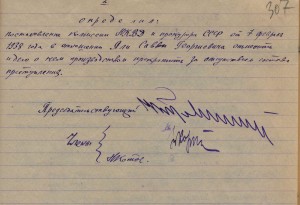 307
определил:
постановление комиссии НКВД и прокурора СССР от 7 февраля
1938 года в отношении Георгиевича отменить
и дело о нем производством прекратить за отсутствием состава
преступления.
Председательствующий
Члены